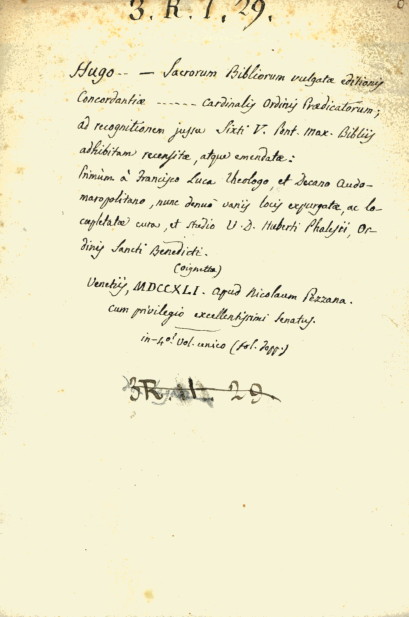 3. R. I. 29.
Hugo -- — Sacrorum Bibliorum vulgatæ editionis
Concordantiæ ------ Cardinalis Ordinis Prædicatorum;
ad recognitionem jussu Sixti V. Pont. Max. Bibliis
adhibitam recensitæ, atque emendatæ:
Primùm à Francisco Luca Theologo, et Decano Audo-
maropolitano, nunc denuò variis locis expurgatæ, ac lo-
cupletatæ cura, et studio V. D. Huberti Phalesii, Or-
dinis Sancti Benedicti.
(vignetta)
Venetiis, MDCCXLI. Apud Nicolaum Pezzana.
cum privilegio excellentissimi Senatus.
in-4º. Vol. unico (fol. dopp.)
3R. II. 29.